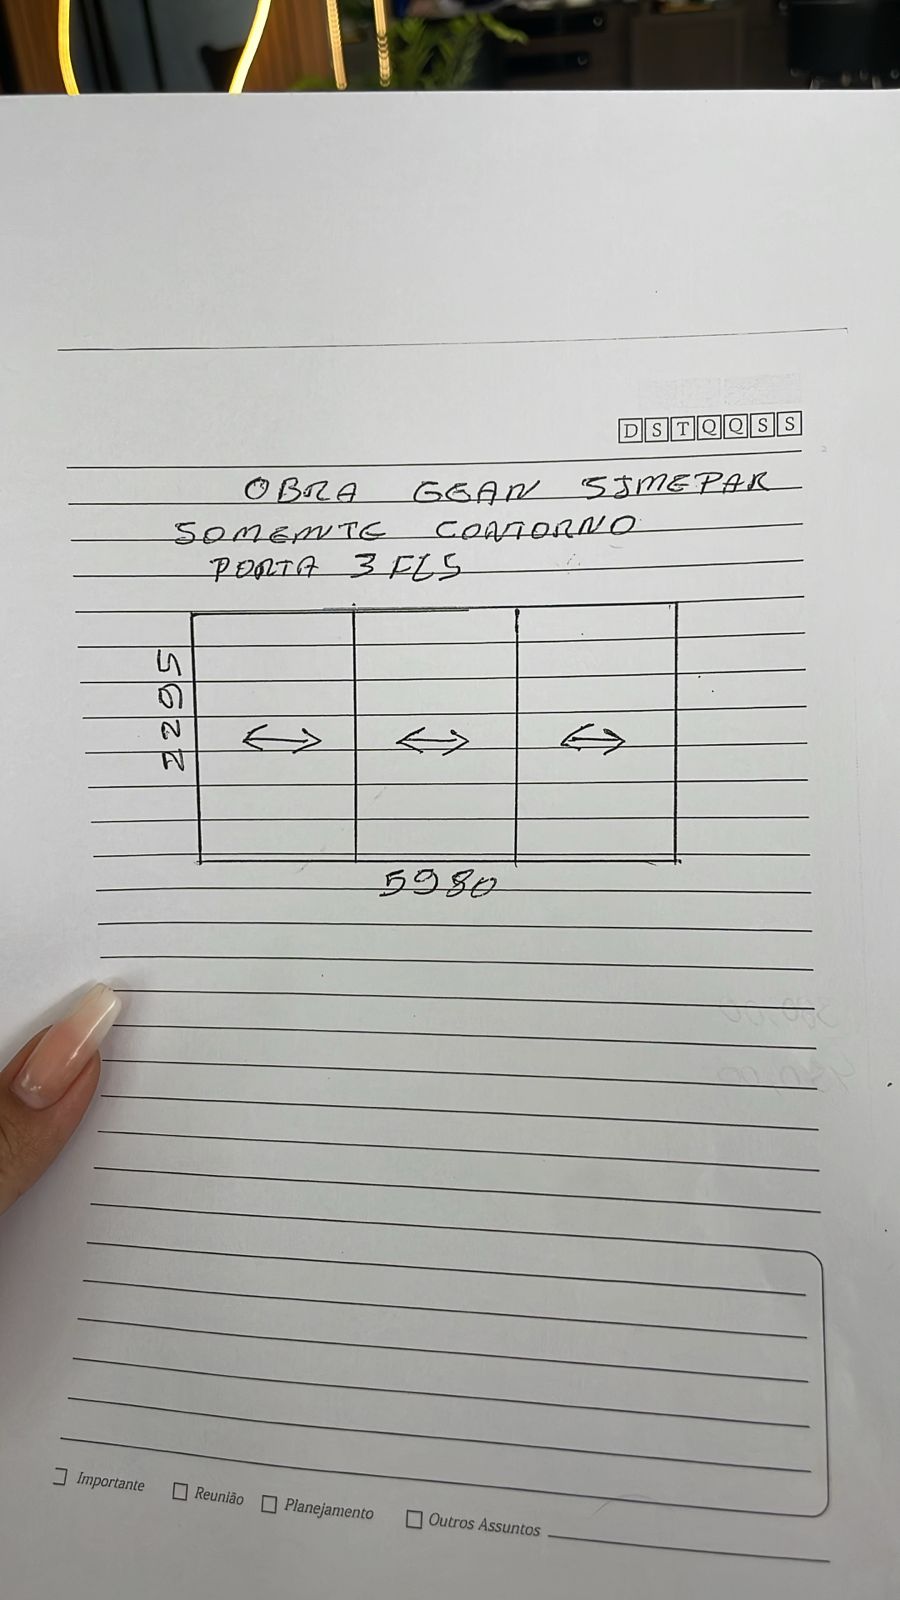 D S T Q Q S S
OBRA GEAN SIMEPAR
SOMENTE CONTORNO
PORTA 3 FLS
2295
5980
Importante
Reunião
Planejamento
Outros Assuntos